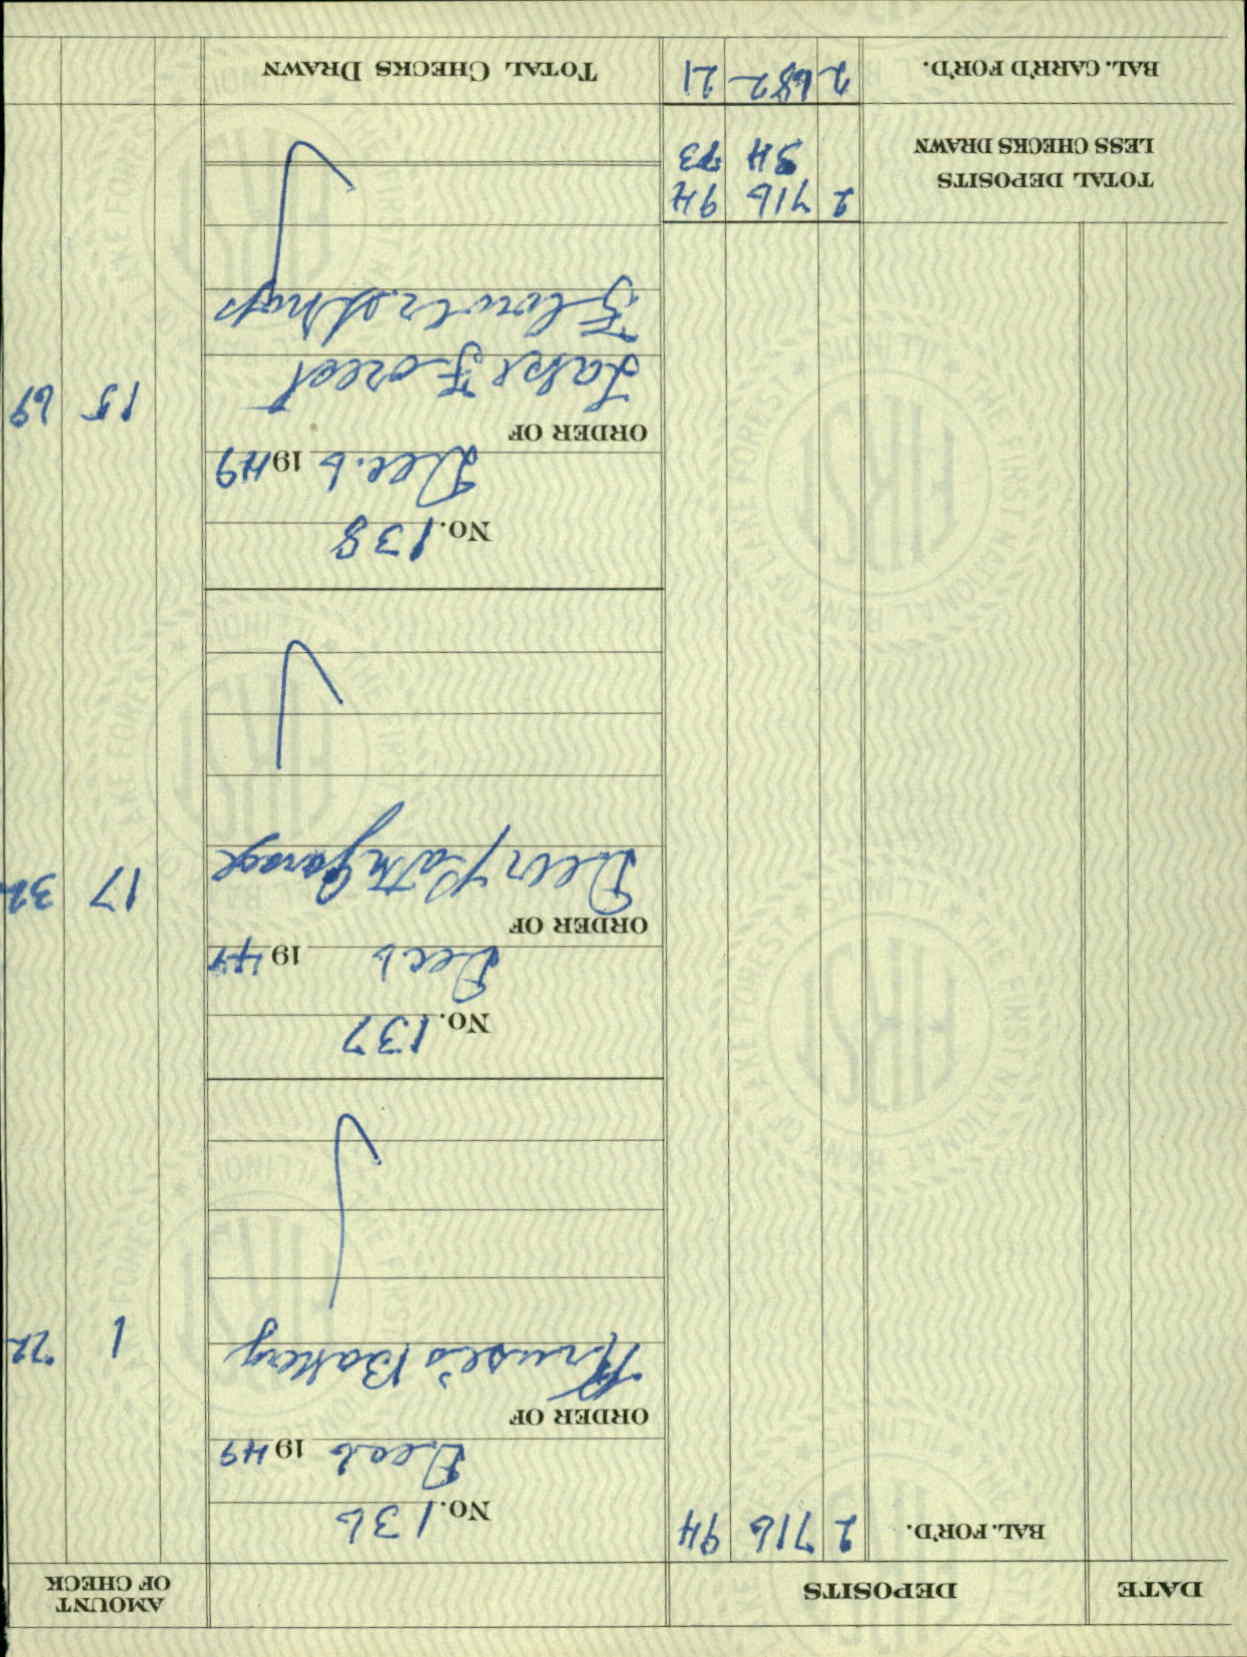 DATE DEPOSITS AMOUNT OF CHECK
BAL. FOR'D. 2 716 94
No. 136
Dec 6 1949
ORDER OF
Kruse's Bakery 1 72
No. 137
Dec 6 1949
ORDER OF
Deerpath Garage 17 32
No. 138
Dec. 6 1949
ORDER OF
Lake Forest 15 69
Flower Shop
TOTAL DEPOSITS 2 716 94
LESS CHECKS DRAWN 34 73
BAL. CARR'D FOR'D. 2 682 21 TOTAL CHECKS DRAWN
FIRST NATIONAL BANK OF LAKE FOREST
ILLINOIS